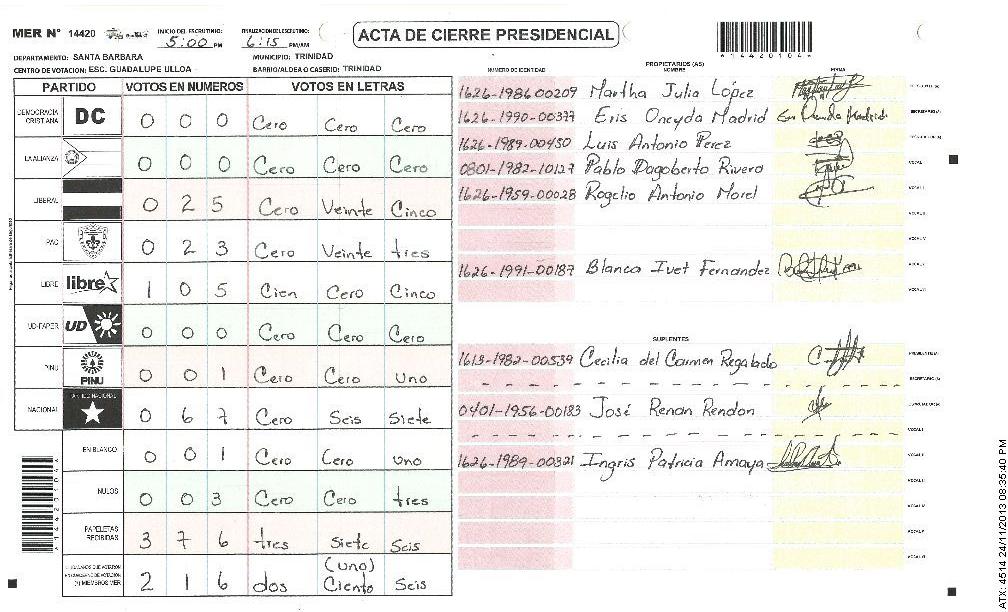 MER N° 14420
INICIO DEL ESCRUTINIO: 5:00 PM
FINALIZACION DEL ESCRUTINIO: 6:15 PM/AM
ACTA DE CIERRE PRESIDENCIAL
*14420104*
DEPARTAMENTO: SANTA BARBARA
MUNICIPIO: TRINIDAD
CENTRO DE VOTACION: ESC. GUADALUPE ULLOA
BARRIO/ALDEA O CASERIO: TRINIDAD
PARTIDO VOTOS EN NUMEROS VOTOS EN LETRAS
DEMOCRACIA CRISTIANA DC 0 0 0 Cero Cero Cero
LA ALIANZA 0 0 0 Cero Cero Cero
LIBERAL 0 2 5 Cero Veinte Cinco
PAC 0 2 3 Cero Veinte tres
LIBRE libre 1 0 5 Cien Cero Cinco
UD-FAPER UD 0 0 0 Cero Cero Cero
PINU PINU 0 0 1 Cero Cero uno
NACIONAL 0 6 7 Cero Seis Siete
EN BLANCO 0 0 1 Cero Cero uno
NULOS 0 0 3 Cero Cero tres
PAPELETAS RECIBIDAS 3 7 6 tres siete Seis
(uno)
2 1 6 dos Ciento Seis
PROPIETARIOS (AS)
NUMERO DE IDENTIDAD NOMBRE FIRMA
1626-1986 00209 Martha Julia López
1626-1990-00377 Eris Oneyda Madrid
1626-1989-00450 Luis Antonio Perez
0801-1982-10127 Pablo Dagoberto Rivera
1626-1959-00028 Rogelio Antonio Morel
1626-1991-00187 Blanca Ivet Fernandez
SUPLENTES
1613-1982-00539 Cecilia del Carmen Regalado
0401-1956-00183 José Renan Rendon
1626-1989-00321 Ingris Patricia Amaya
ATX: 4514 24/11/2013 08:35:40 PM